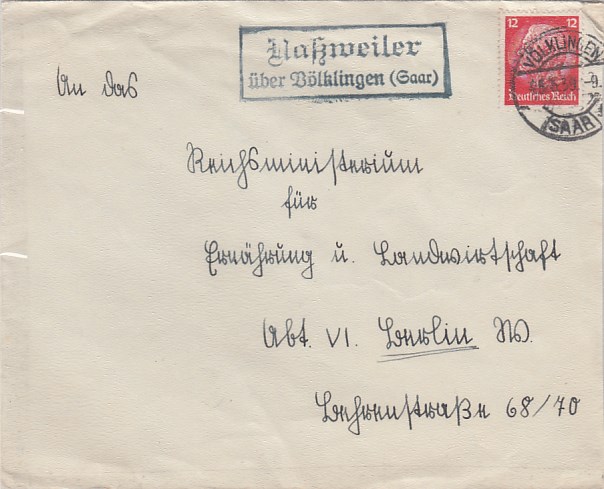 Naßweiler
über Völklingen (Saar)
12 12
Deutsches Reich
VÖLKLINGEN
(SAAR)
An das
Reichsministerium
für
Ernährung u. Landwirtschaft
Abt. VI. Berlin W.
Behrenstraße 68/70